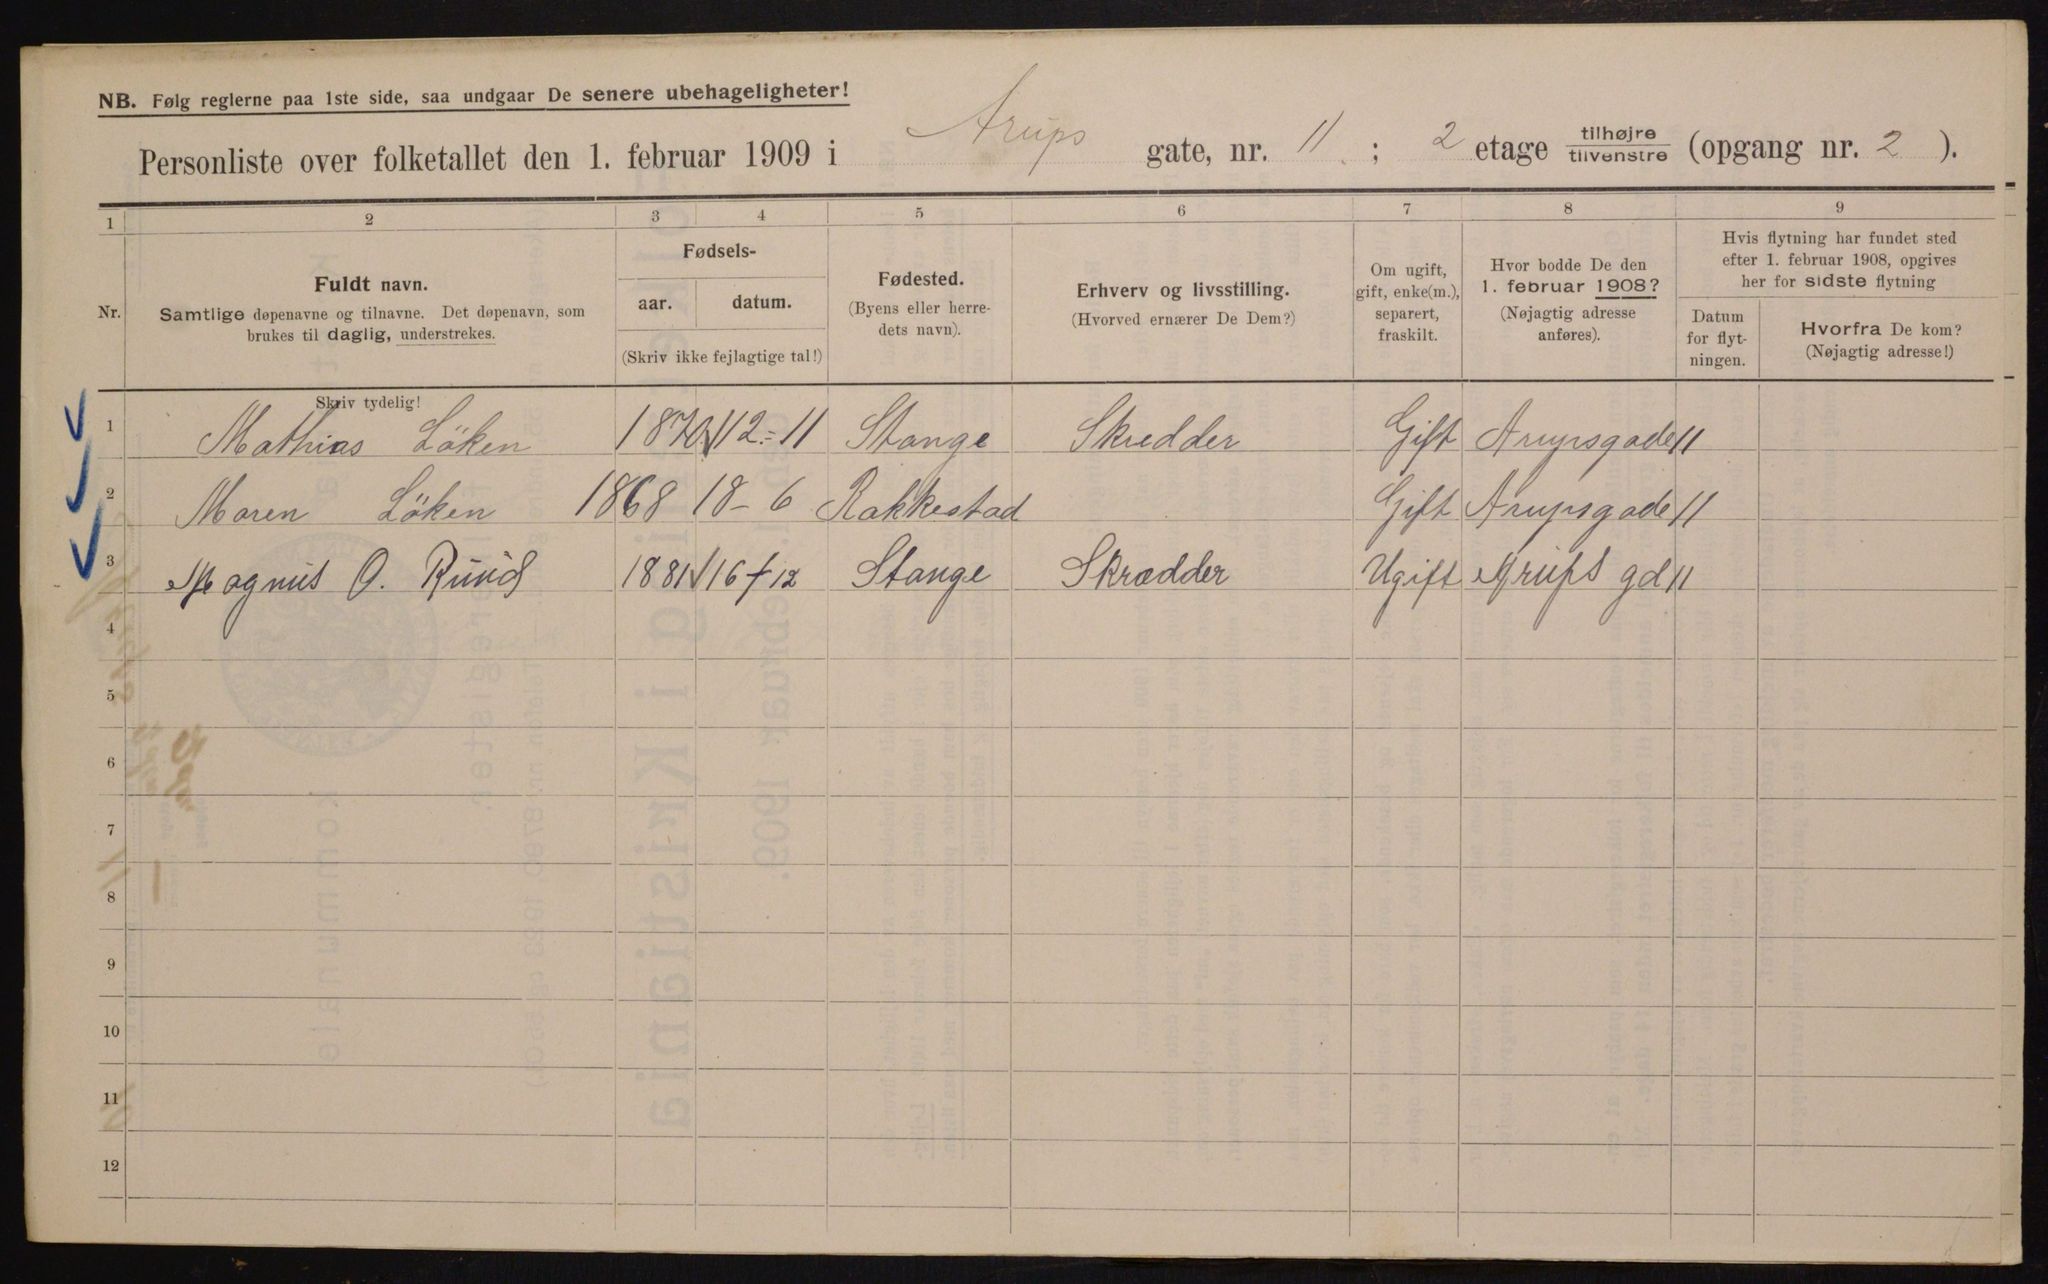 NB. Følg reglerne paa 1ste side, saa undgaar De senere ubehageligheter!
Personliste over folketallet den 1. februar 1909 i Arups gate, nr. 11 ; 2 etage tilhøjre/tilvenstre (opgang nr. 2 ).
1 2 3 4 5 6 7 8 9
Nr.
Fuldt navn.
Samtlige døpenavne og tilnavne. Det døpenavn, som
brukes til daglig, understrekes.
Skriv tydelig!
Fødsels-
aar. datum.
(Skriv ikke fejlagtige tal!)
Fødested.
(Byens eller herre-
dets navn).
Erhverv og livsstilling.
(Hvorved ernærer De Dem?)
Om ugift,
gift, enke(m.),
separert,
fraskilt.
Hvor bodde De den
1. februar 1908?
(Nøjagtig adresse
anføres).
Hvis flytning har fundet sted
efter 1. februar 1908, opgives
her for sidste flytning
Datum
for flyt-
ningen.
Hvorfra De kom?
(Nøjagtig adresse!)
1 Mathias Löken 1870 12.-11 Stange Skredder Gift Arupsgade 11
2 Maren Löken 1868 18-6 Rakkestad Gift Arupsgade 11
3 Magnus O. Ruud 1881 16/12 Stange Skrædder Ugift Arups gd 11
4
5
6
7
8
9
10
11
12